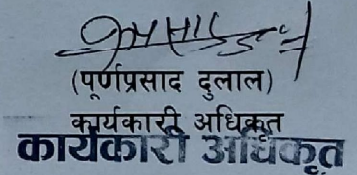 (पूर्णप्रसाद दुलाल)
कार्यकारी अधिकृत
कार्यकारी अधिकृत